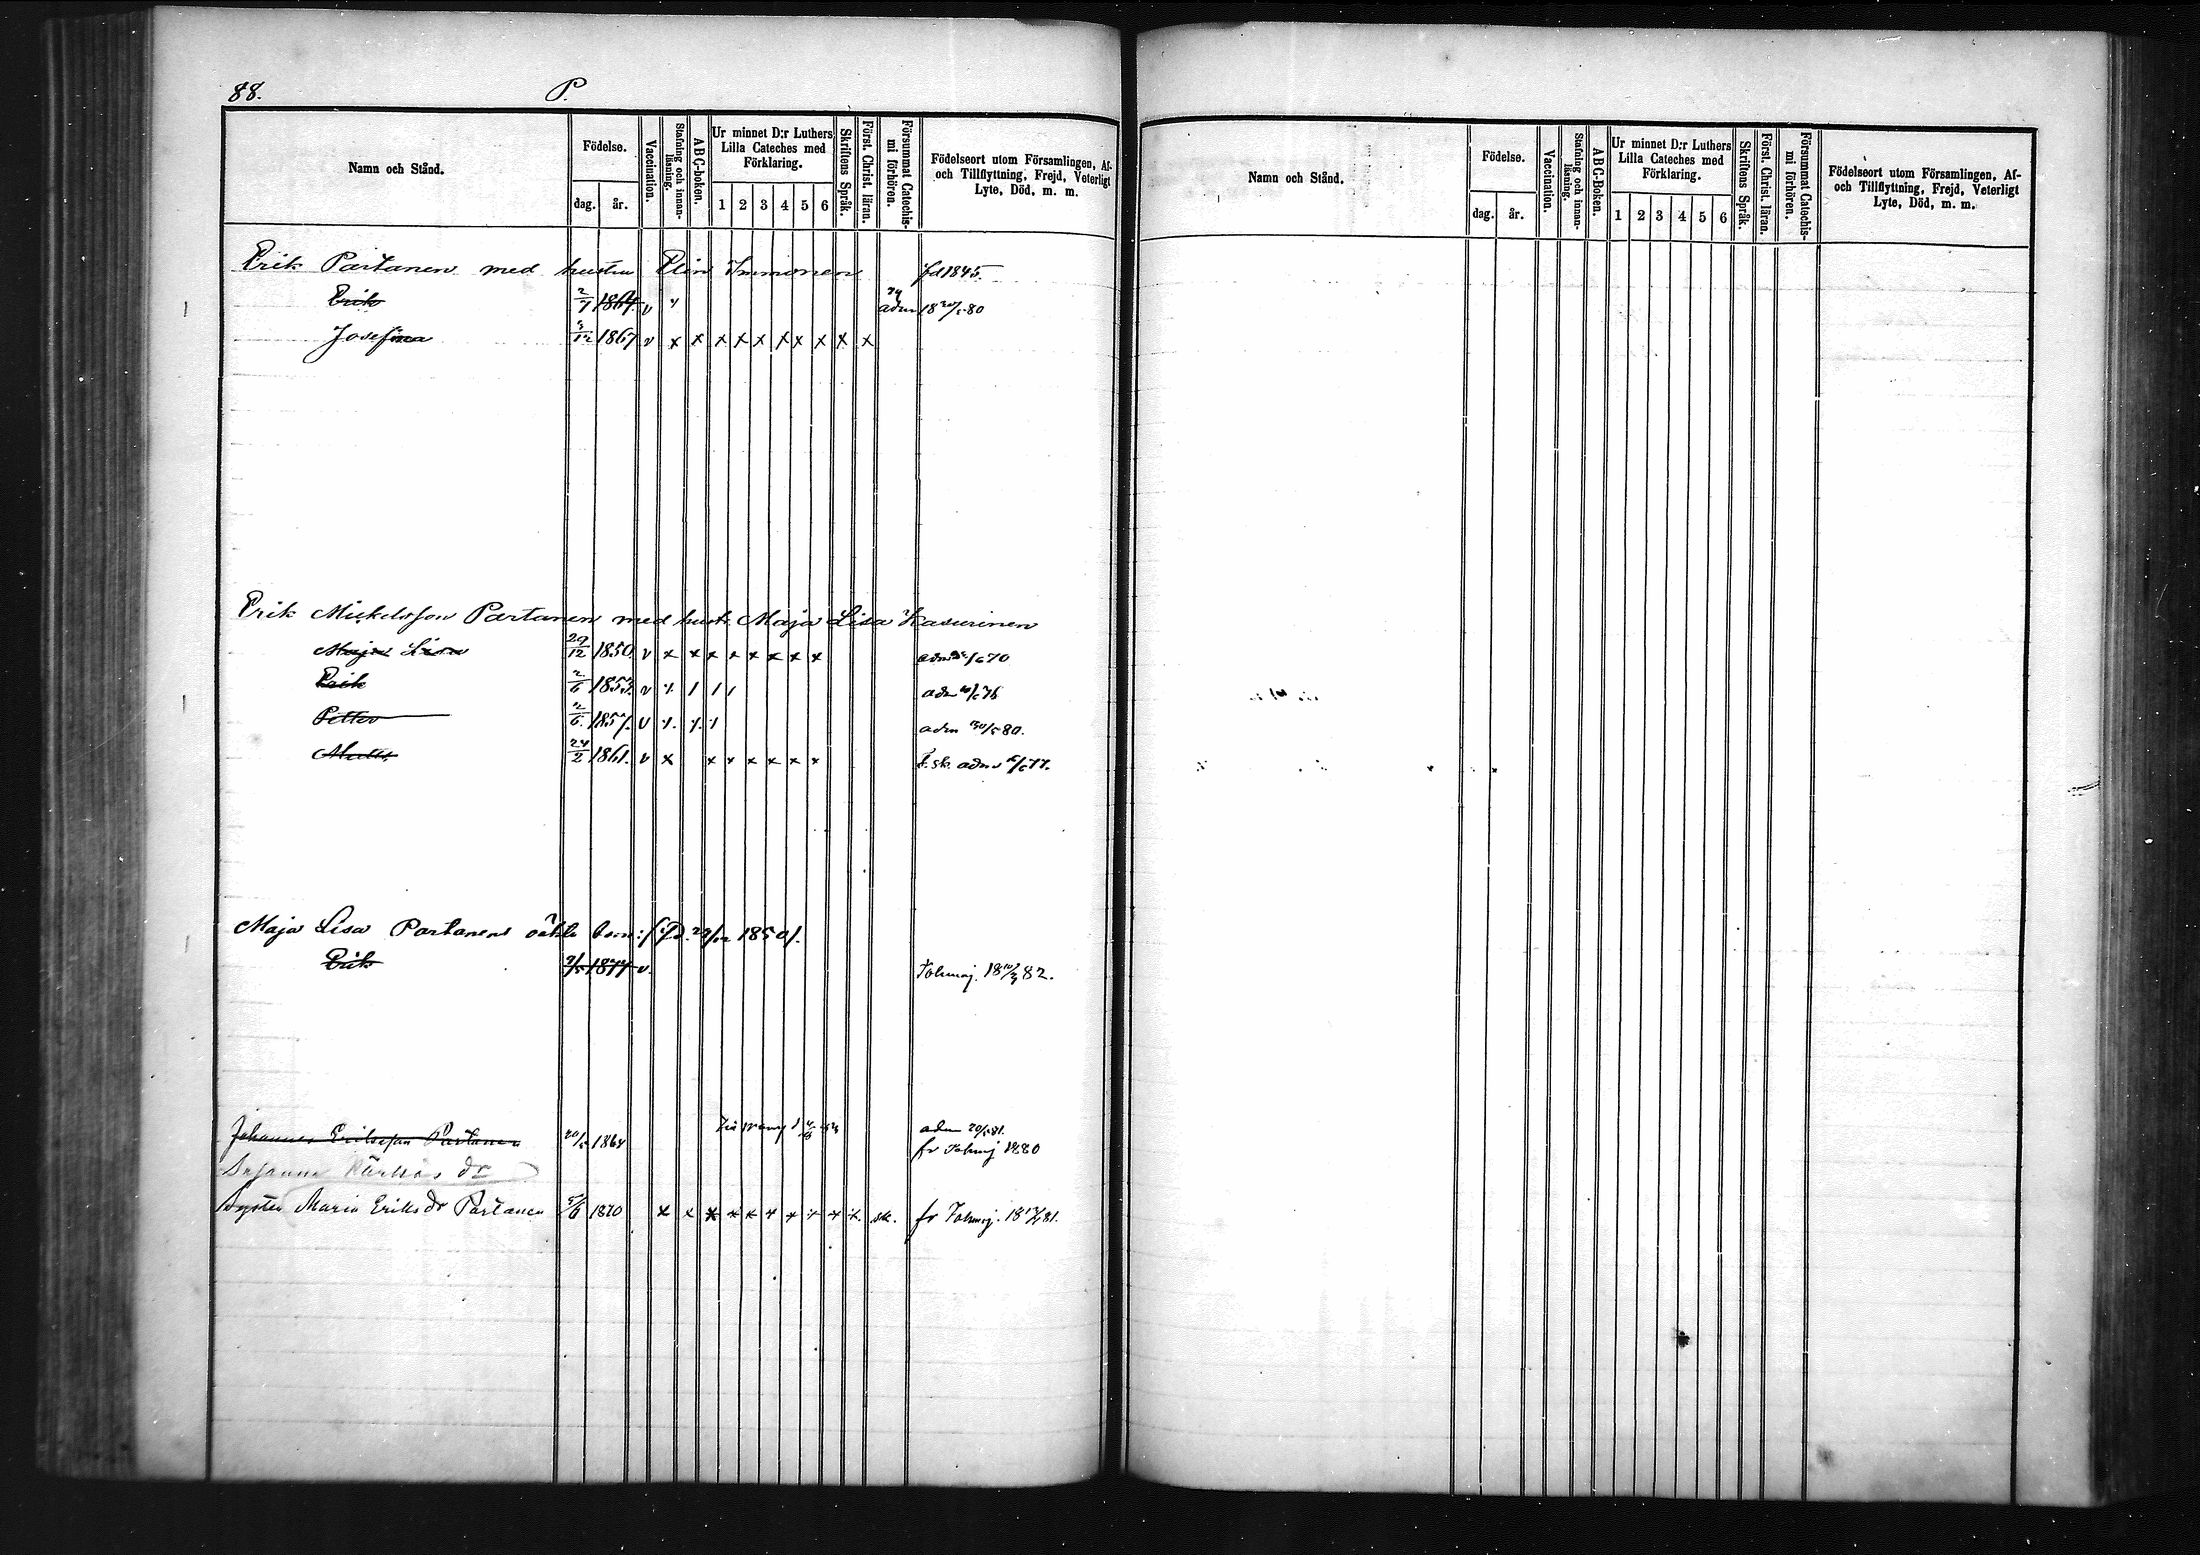 88. P.
Namn och Stånd. Födelse. dag. år. Vaccination. Stafning och innanläsning. ABC-boken. Ur minnet D:r Luthers Lilla Cateches med Förklaring. 1 2 3 4 5 6 Skriftens Språk. Först. Christ. läran. Försummat Catechismi förhören. Födelseort utom Församlingen, Af- och Tillflyttning, Frejd, Veterligt Lyte, Död, m. m.
Erik Partanen med hustru Elin Immonen fd 1845.
Erik 2/7 1864. v adm 18 20/5 80
Josefina 3/12 1867 v x x x x x x x x x x
Erik Mickelsson Partanen med hustr. Maja Lisa Kasurinen
Maja Lisa 29/12 1850 v x x x x x x x x adm /6 70
Erik 2/6 1853. v adm /6 76
Petter 2/6 1857. v adm 20/5 80.
Matts 24/2 1861. v x x x x x x x F. sk. adm /6 77.
Maja Lisa Partanens oäkta barn: /: fd. 29/12 1850 /.
Erik 1877 v. Tohmaj. 18 82.
Johannes Eriksson Partanen 20/5 1864 adm 20/5 81.
fr Tohmaj 1880
Susanna dr
Syster Maria Eriksdr Partanen 5/6 1870 x x x x x x x x x x sk. fr Tohmaj. 18 81.
Namn och Stånd. Födelse. dag. år. Vaccination. Stafning och innanläsning. ABC-Boken. Ur minnet D:r Luthers Lilla Cateches med Förklaring. 1 2 3 4 5 6 Skriftens Språk. Först. Christ. läran. Försummat Catechismi förhören. Födelseort utom Församlingen, Af- och Tillflyttning, Frejd, Veterligt Lyte, Död, m. m.